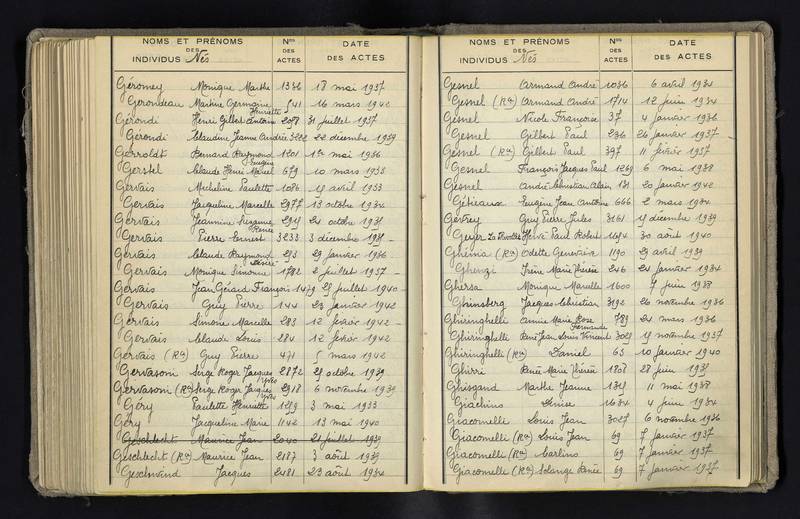 NOMS ET PRÉNOMS
DES
INDIVIDUS Nés
Nos
DES
ACTES
DATE
DES ACTES
Géromey Monique Marthe 1336 18 mai 1937
Gerondeau Martine Germaine 541 16 mars 1942
Henriette
Gérondi Henri Gilbert Antoine 2098 31 juillet 1937
Gérondi Claudine Jeanne Andrée 3222 22 décembre 1939
Gerroldt Bernard Raymond 1201 1er mai 1936
Eugène
Gerstel Claude Henri Marcel 679 10 mars 1933
Gervais Micheline Paulette 1086 19 avril 1933
Gervais Jacqueline Marcelle 2977 13 octobre 1934
Gervais Jeannine Suzanne 2919 24 octobre 1931
Renée
Gervais Pierre Ernest 3233 3 décembre 1931
Gervais Claude Raymond 293 29 janvier 1936
Désiré
Gervais Monique Simonne 1782 2 juillet 1937
Gervais Jean Gérard François 1479 25 juillet 1940
Gervais Guy Pierre 144 23 janvier 1942
Gervais Simone Marcelle 283 12 février 1942
Gervais Claude Louis 284 12 février 1942
Gervais (Ron) Guy Pierre 471 5 mars 1942
Gervasoni Serge Roger Jacques 2872 29 octobre 1939
Yves
Gervasoni (Ron) Serge Roger Jacques 2918 6 novembre 1939
Yves
Géry Paulette Henriette 1259 3 mai 1933
Géry Jacqueline Marie 1142 13 mai 1940
Geschlecht Maurice Jean 2040 21 juillet 1939
Geschlecht (Ron) Maurice Jean 2187 3 août 1939
Geschwind Jacques 2481 23 août 1934
NOMS ET PRÉNOMS
DES
INDIVIDUS Nés
Nos
DES
ACTES
DATE
DES ACTES
Gesnel Armand André 1036 6 avril 1934
Gesnel (Ron) Armand André 1714 12 juin 1934
Gesnel Nicole Françoise 37 4 janvier 1936
Gesnel Gilbert Paul 236 26 janvier 1937
Gesnel (Ron) Gilbert Paul 397 11 février 1937
Gesnel François Jacques Paul 1269 6 mai 1938
Gesnel André Christian Alain 131 20 janvier 1942
Gétiaux Eugène Jean Antoine 666 2 mars 1934
Gevrey Guy Pierre Jules 3161 19 décembre 1939
Geyer Hervé Paul Robert 1694 30 août 1940
Ghémia (Ron) Odette Geneviève 1190 29 avril 1939
Ghenzi Irène Marie Thérèse 246 24 janvier 1934
Ghersa Monique Marcelle 1600 7 juin 1938
Ghinsberg Jacques Christian 3192 26 novembre 1936
Ghiringhelli Annie Marie Rose 789 24 mars 1936
Fernande
Ghiringhelli René Jean Louis Vincent 3029 19 novembre 1937
Ghiringhelle (Ron) Daniel 63 10 janvier 1940
Ghirri Renée Marie Thérèse 1808 28 juin 1931
Ghisgand Marthe Jeanne 1349 11 mai 1938
Giachino Denise 1634 4 juin 1934
Giacomelli Louis Jean 3027 6 novembre 1936
Giacomelle (Ron) Louis Jean 69 7 janvier 1937
Giacomelle (Ron) Carlino 69 7 janvier 1937
Giacomelle (Ron) Solange Renée 69 7 janvier 1937